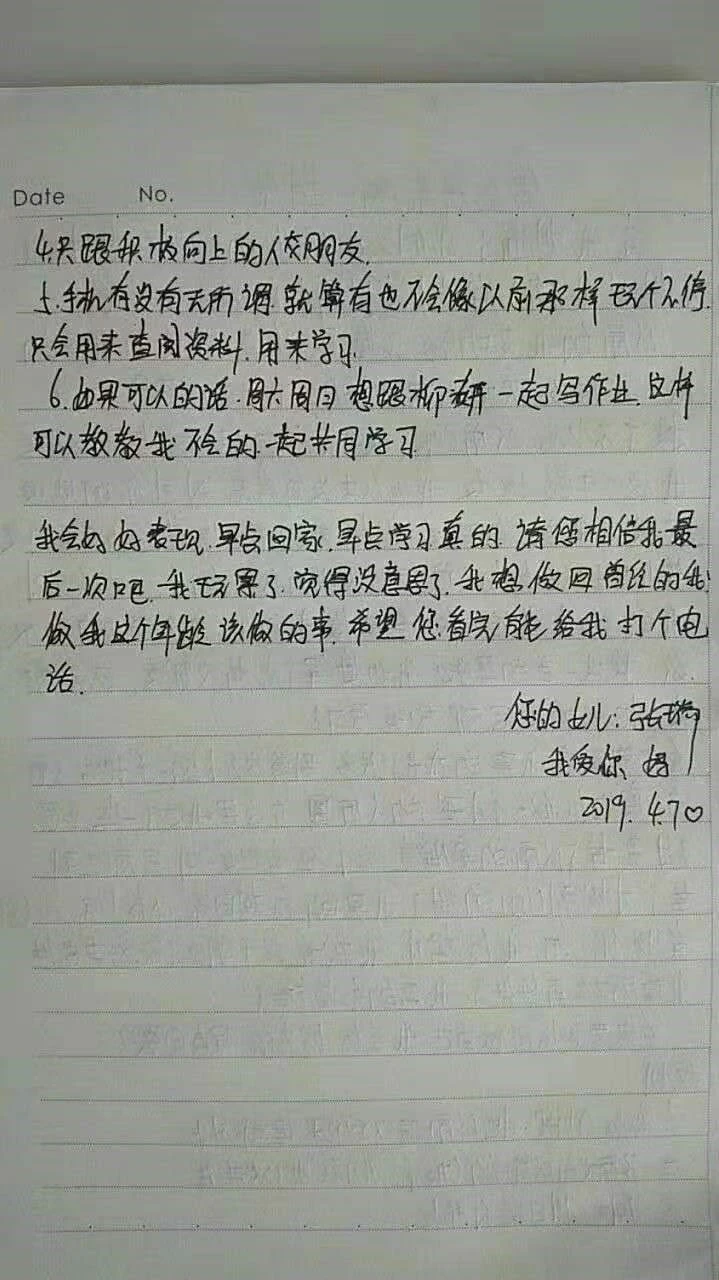 Date No.
4.只跟积极向上的人交朋友.
5.手机有没有无所谓.就算有也不会像以前那样玩个不停.
只会用来查阅资料.用来学习.
6.如果可以的话.周六周日想跟柳妍一起写作业.这样
可以教教我不会的.一起共同学习.
我会好好表现.早点回家.早点学习.真的.请您相信我最
后一次吧.我玩累了.觉得没意思了.我想做回曾经的我.
做我这个年龄该做的事.希望您看完能给我打个电
话.
您的女儿:张
我爱你 妈
2019.4.7♡